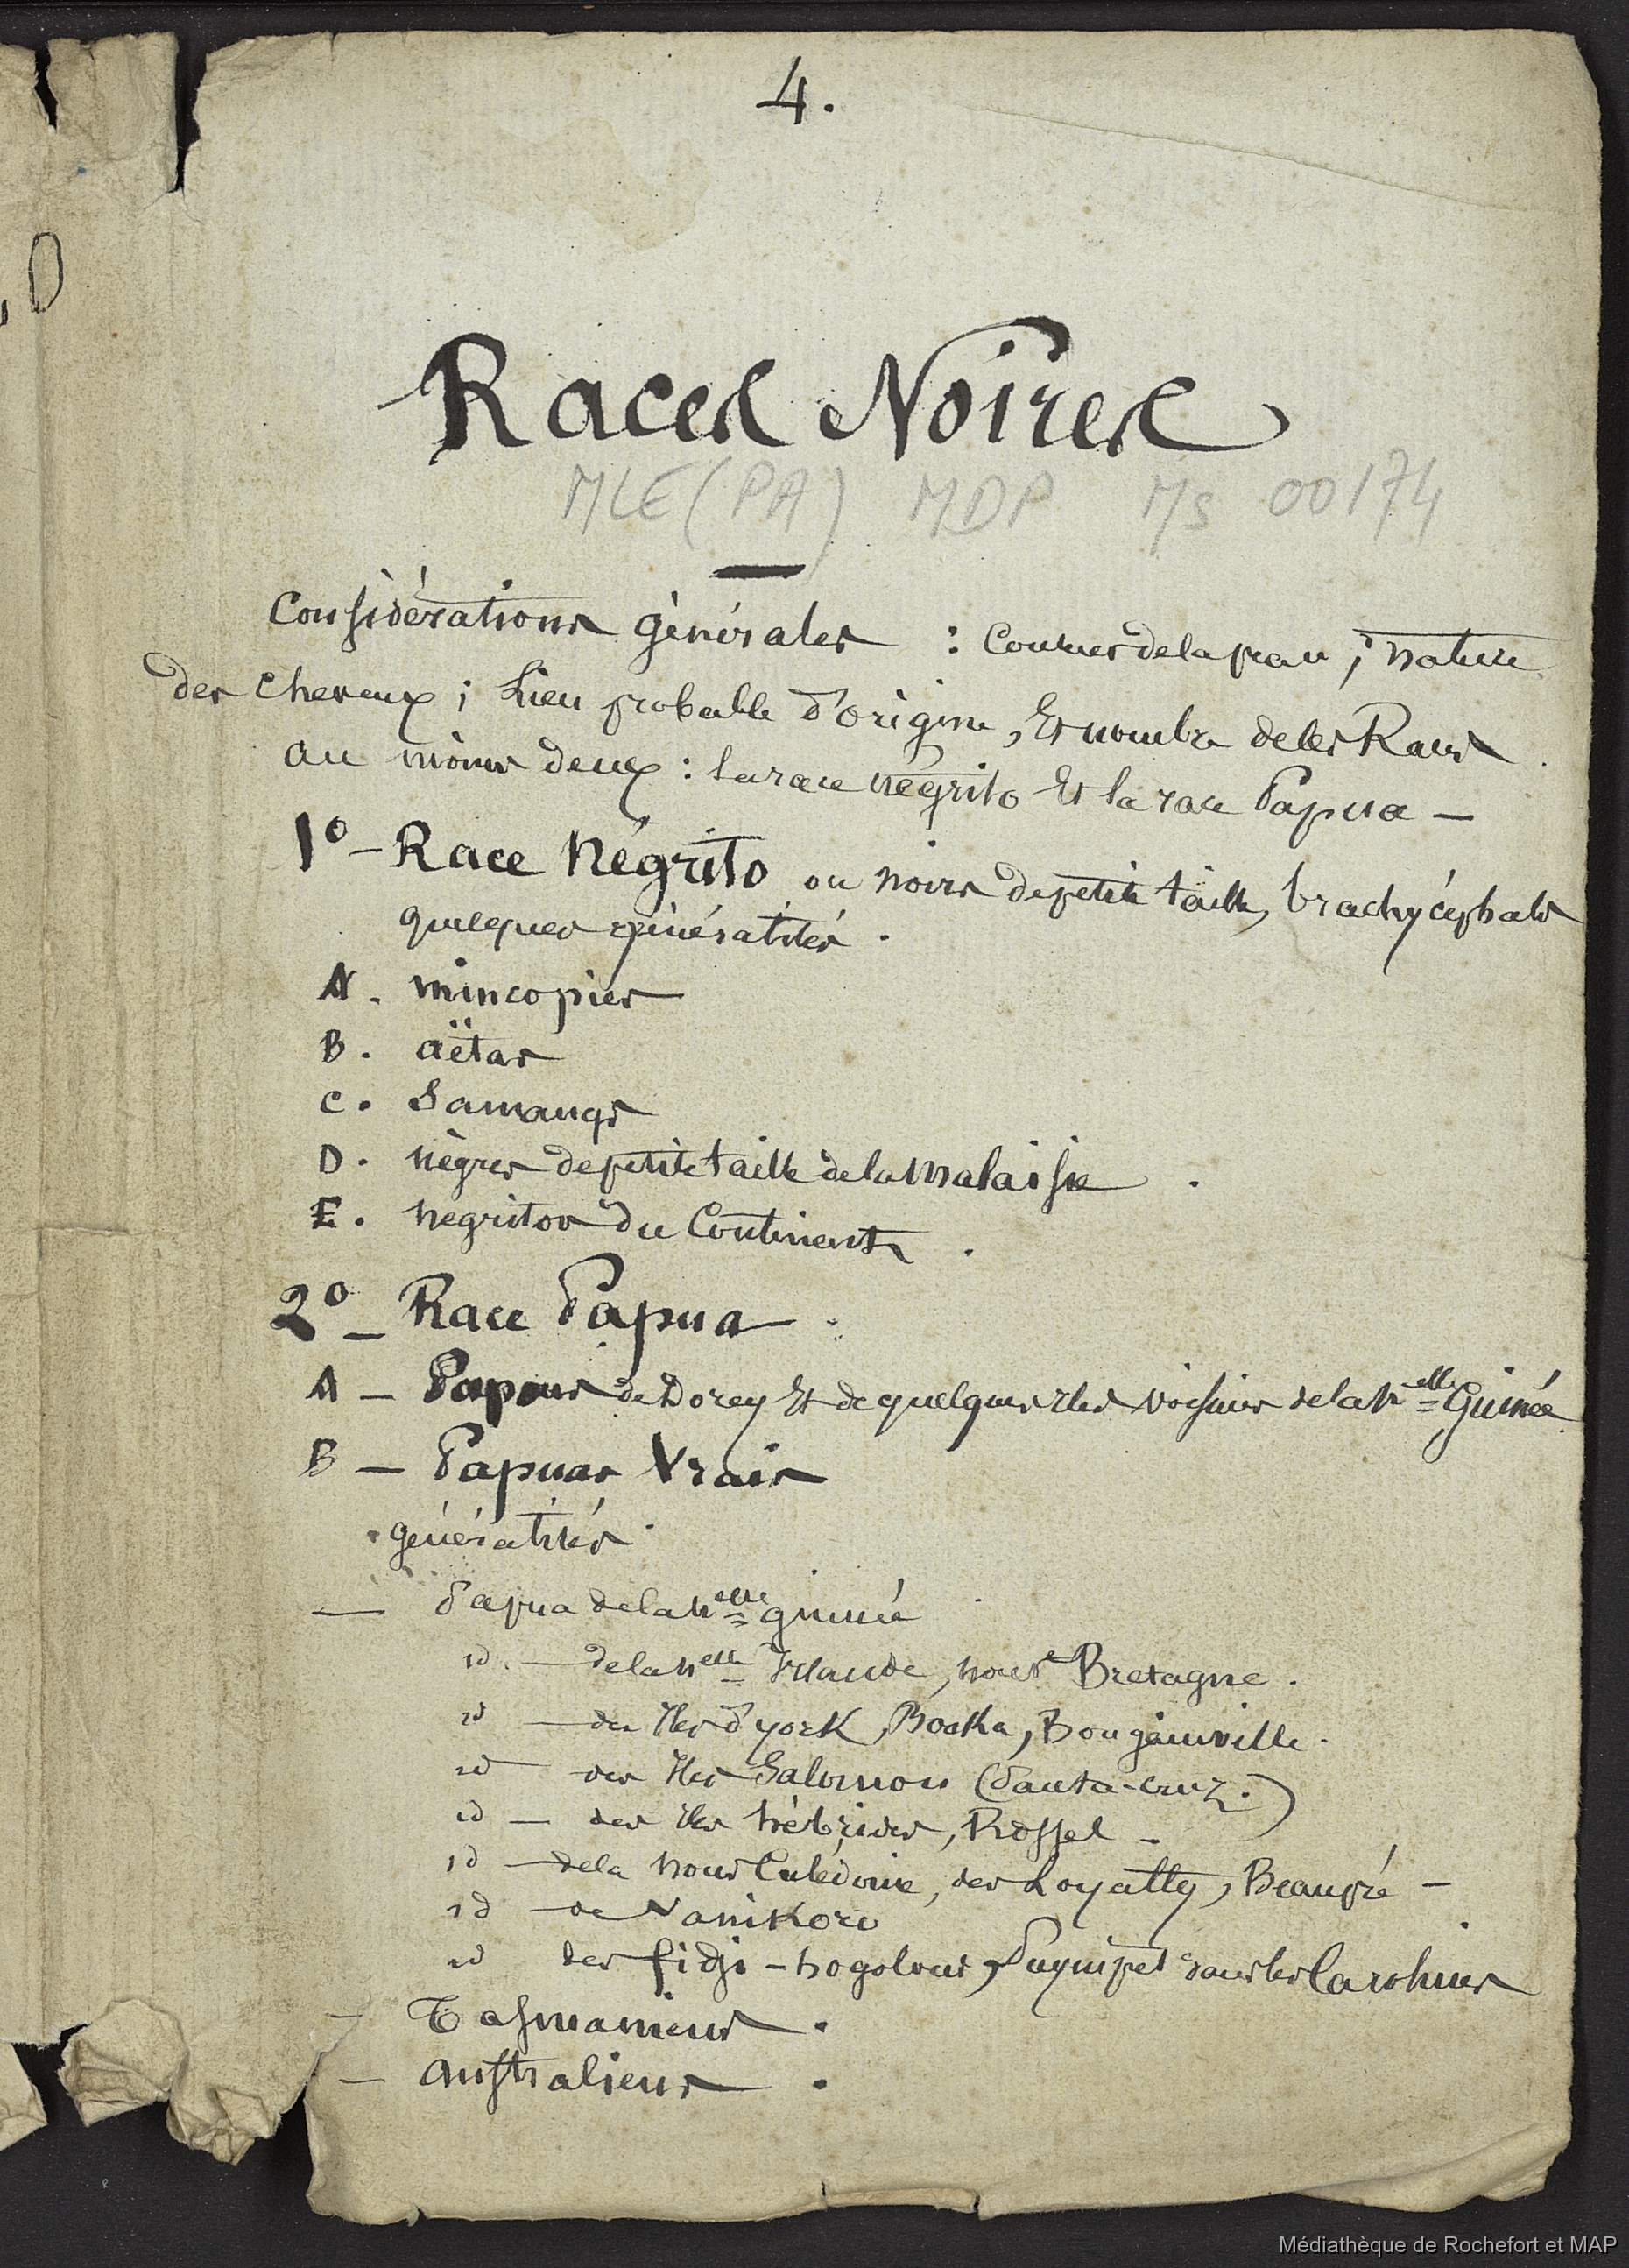 4.
Races Noires
MLE (PA) MDP Ms 00174
Considérations générales : Couleur de la peau ; nature
des cheveux ; Lieu probable d'origine, Et nombre de les Races
au moins deux : la race négrito Et la race Papua —
1º — Race Négrito ou noirs de petite taille, brachycéphales
quelques généralités .
A . mincopies
B . aëtas
C . Samangs
D . nègres de petite taille de la Malaisie .
E . negritos du Continent .
2º — Race Papua .
A — Papous de Dorey Et de quelques Iles voisines de la Nelle Guinée
B — Papuas Vrais
généralités .
— Papua de la Nelle guinée
id . — de la Nelle Irlande, nouve Bretagne .
id — des Iles d'york, Booka, Bougainville .
id des Iles Salomon (Santa-Cruz .)
id — des Iles hébrides, Rossel —
id — de la nouv Calédonie, des Loyalty, Beaupré —
id — de Vanikoro
id des fidji - hogoleus, Puynipet dans les Carolines
— Tasmaniens .
— Australiens .
Médiathèque de Rochefort et MAP